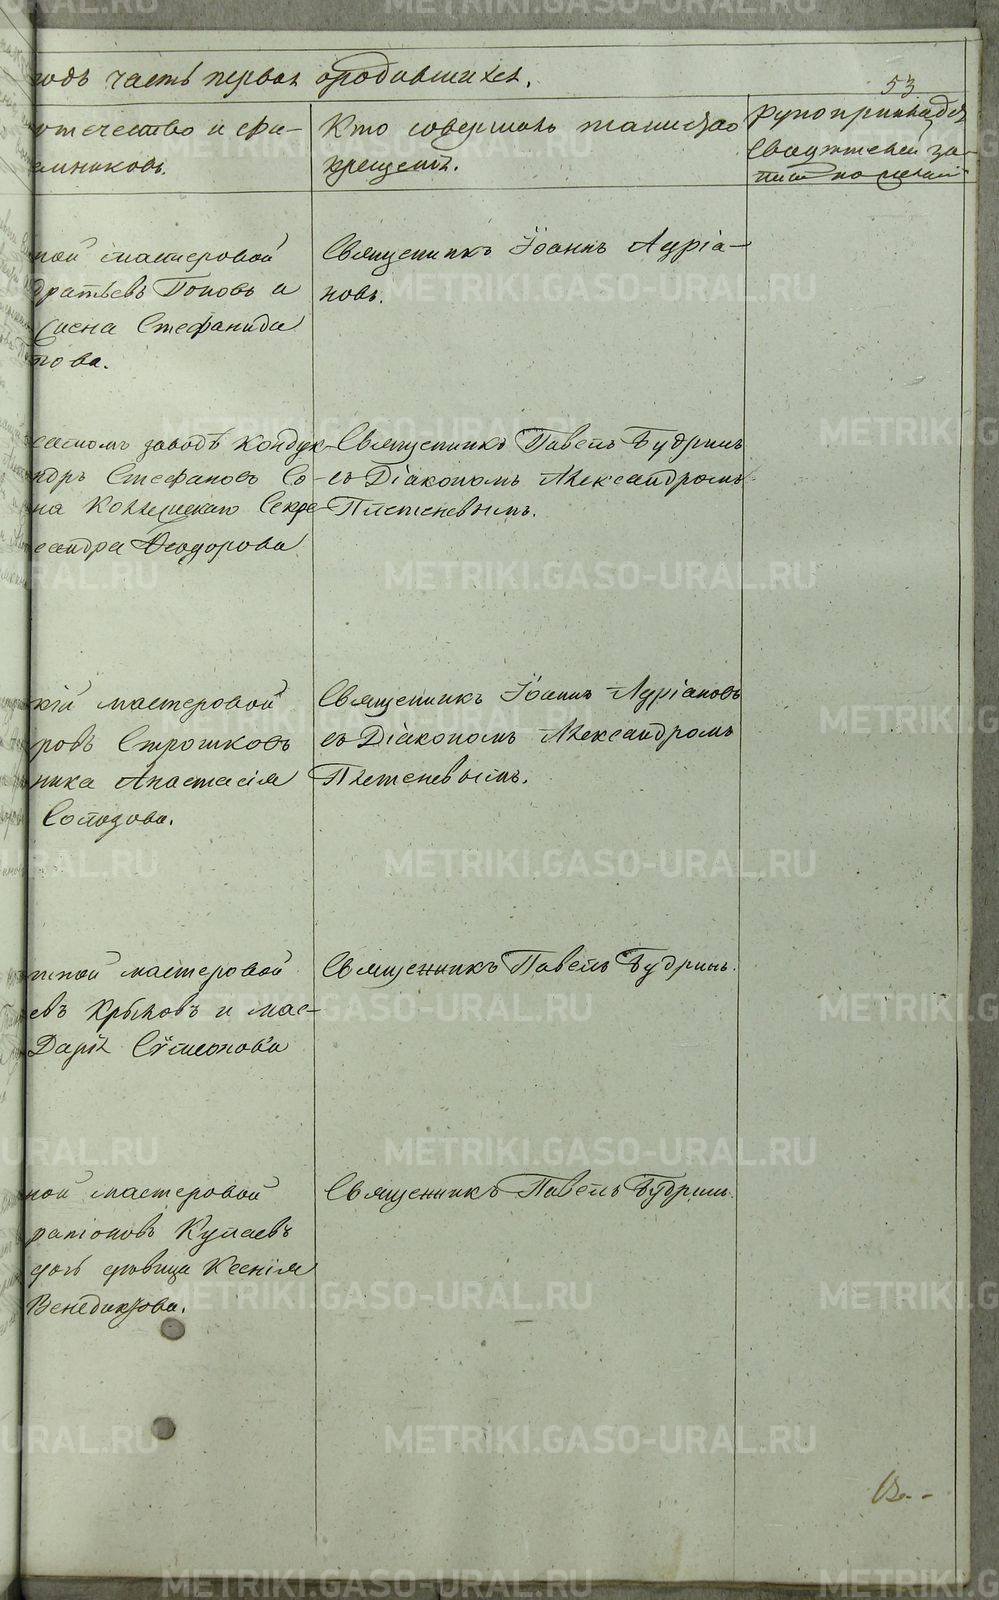 годъ часть первая о родившихся.
53
отчество и фа-
емниковъ.
Кто совершалъ таинство
крещенія.
Рукоприкладст
свидѣтелей за-
писи по желан
ной мастеровой
братьевъ Поповъ и
Стефанида
пова.
Священникъ Іоаннъ Адріа-
новъ.
заводѣ Кондук
ндръ Стефановъ Со-
на Коллежскаго Секре-
сандра Ѳеодорова
Священникъ Павелъ Будринъ
съ Діакономъ Александромъ
Плетеневымъ.
кій мастеровой
ровъ Строшковъ
ника Анастасія
Солодова.
Священникъ Іоаннъ Адріановъ
съ Діакономъ Александромъ
Плетеневымъ.
ной мастеровой
евъ Крыловъ и мас-
Дарія Сѵмеонова
Священникъ Павелъ Будринъ.
ной мастеровой
ѣвица Ксенія
Венедиктова.
Священникъ Павелъ Будринъ.
METRIKI.GASO-URAL.RU